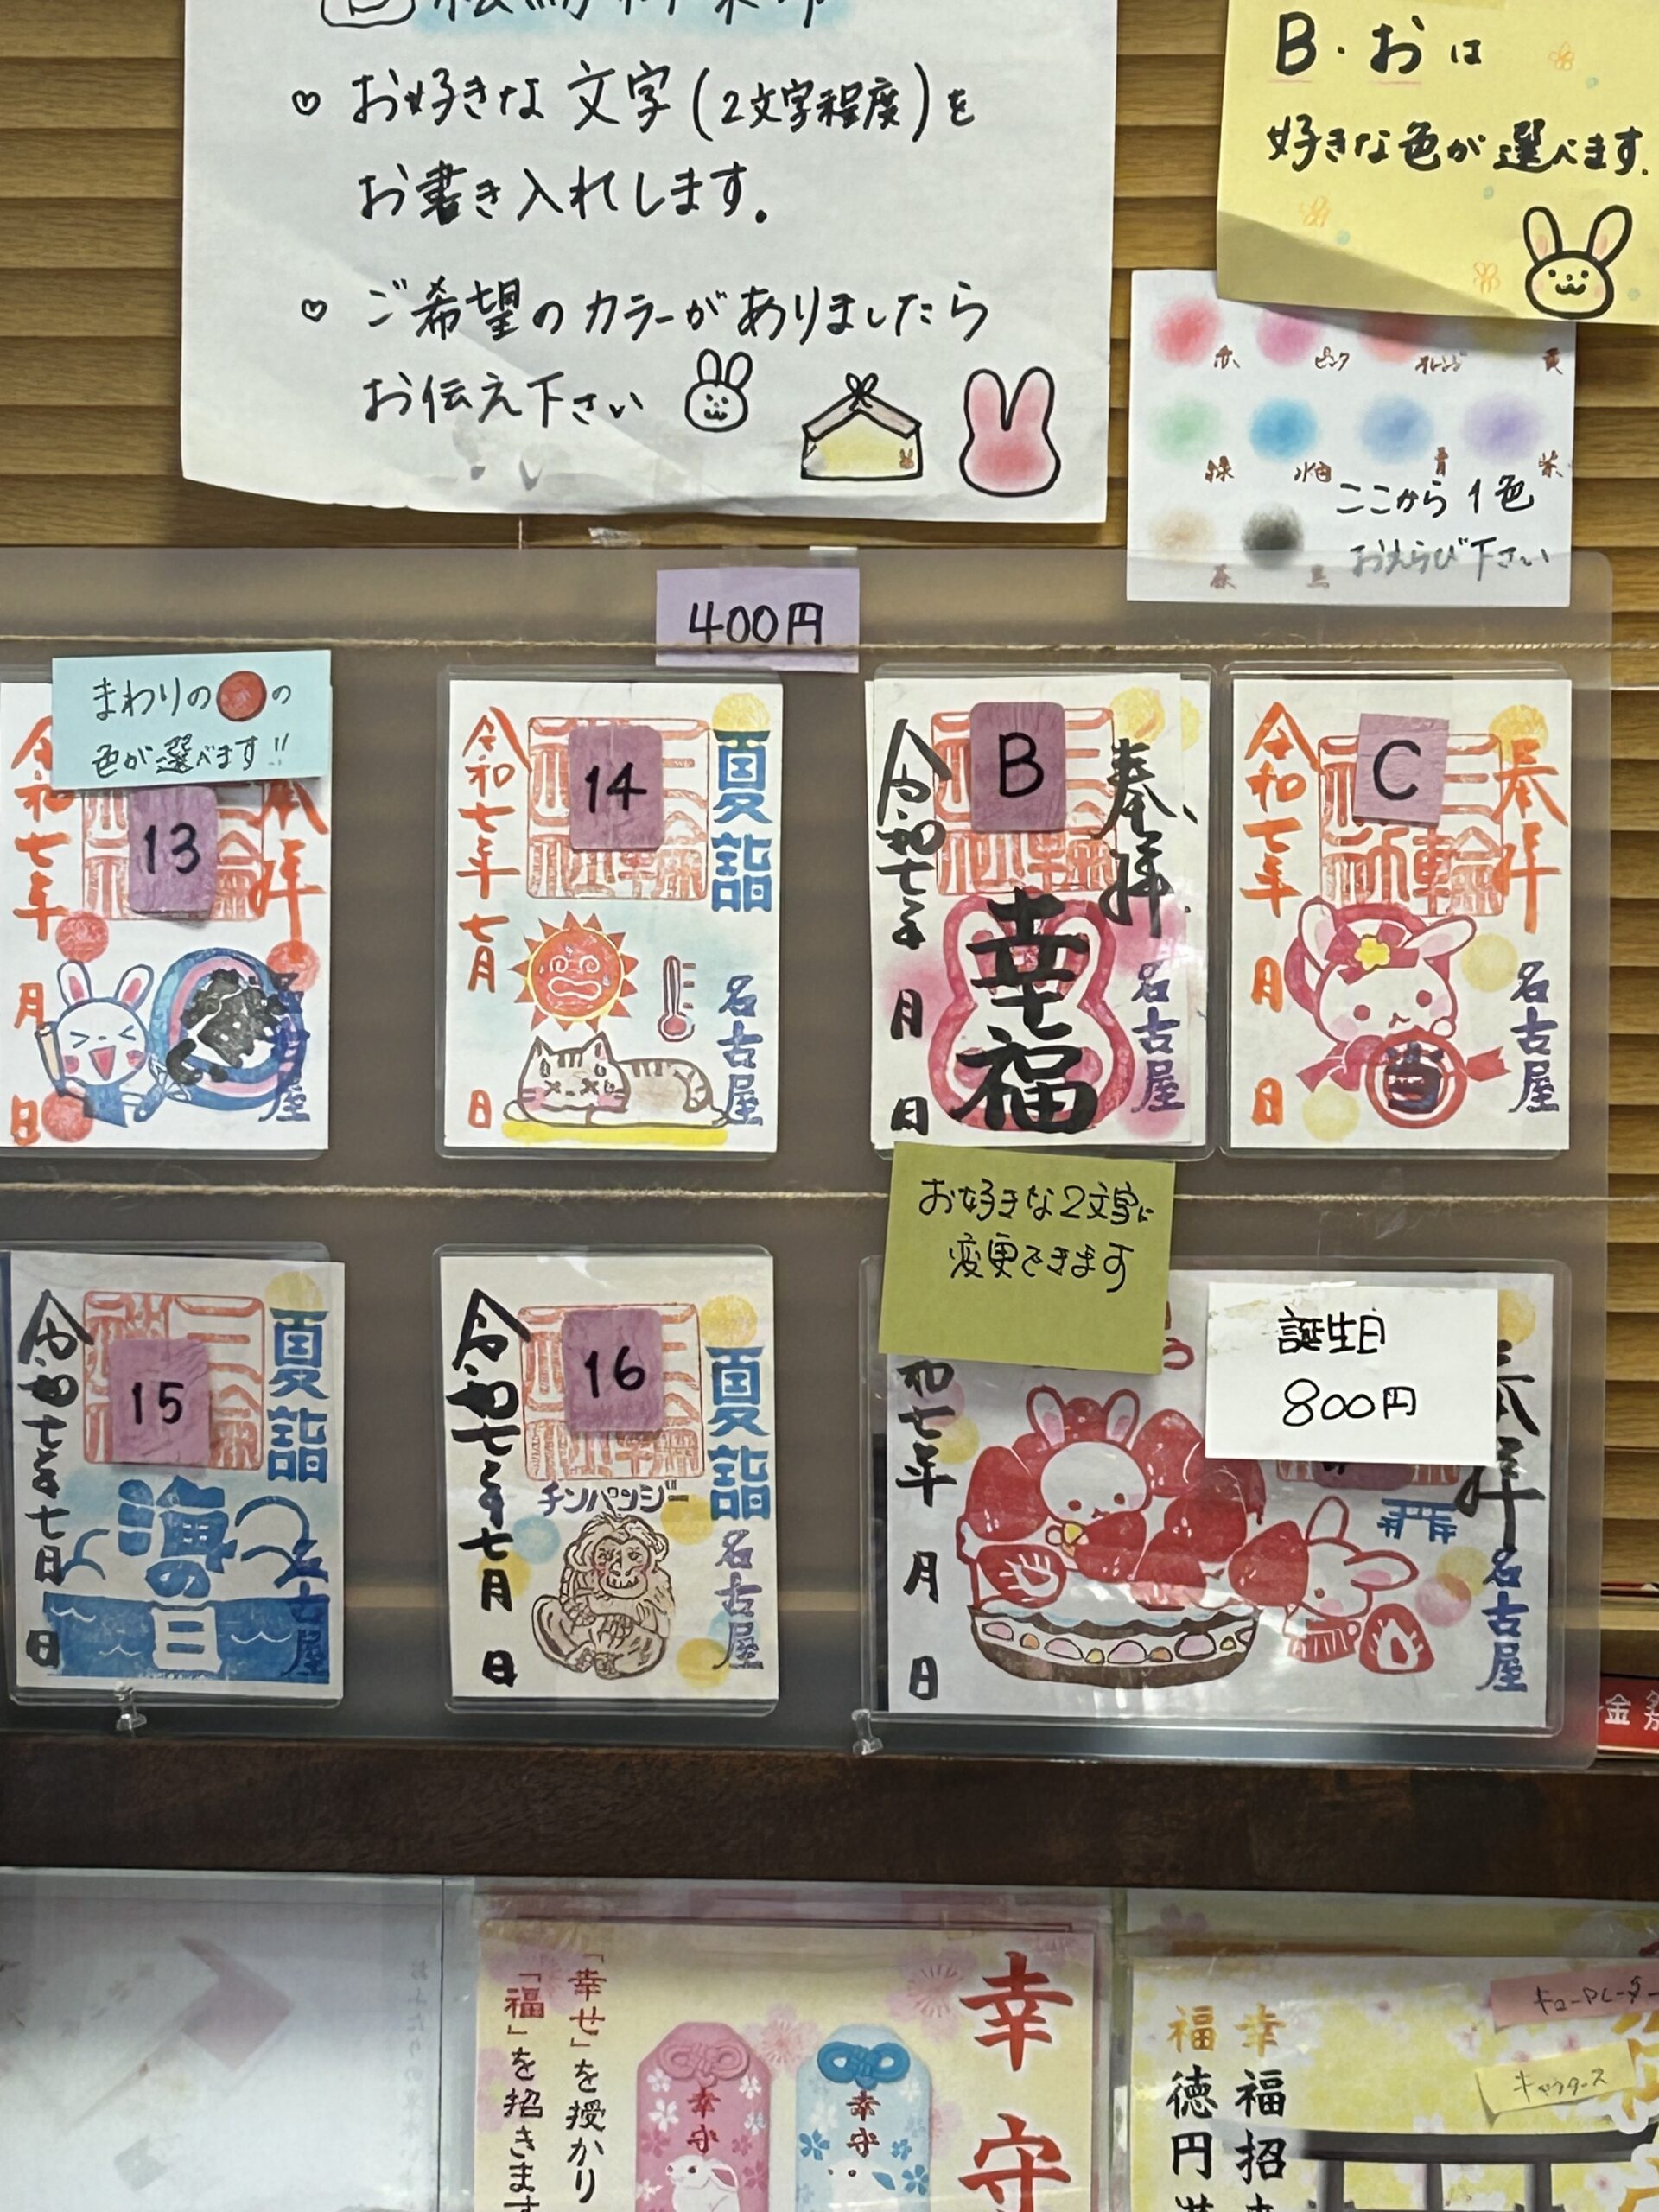 お好きな文字(2文字程度)を
お書き入れします。
ご希望のカラーがありましたら
お伝え下さい
B・おは
好きな色が選べます.
赤 ピンク オレンジ 黄
緑 水色 青 紫
茶 黒
ここから1色
おえらび下さい
400円
まわりの の
色が選べます!!
13
令和七年
月
日
奉拝
14
夏詣
名古屋
令和七年七月
日
B
奉拝
幸福
名古屋
令和七年
月
日
C
奉拝
当
名古屋
令和七年
月
日
お好きな2文字に
変更できます
15
夏詣
海の日
名古屋
令和七年七月
日
16
夏詣
チンパンジー
名古屋
令和七年七月
日
誕生日
800円
奉拝
名古屋
和七年
月
日
幸守
「幸せ」を授かり
「福」を招きます
幸守
幸守
キューアレーター
キャラクターズ
幸福招
福徳円満
金